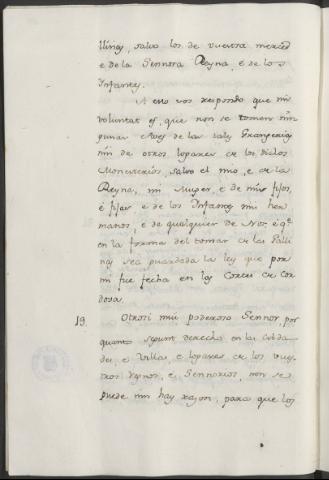 llinas, salvo los de vuestra merced
e de la Sennora Reyna, e de los
Infantes.
A esto vos respondo que mi
voluntat es, que non se tomen nin
gunas Aves de las tales Granjerias
nin de otros logares de los dichos
Monesterios, salvo el mio, e de la
Reyna, mi Muger, e de mis fijos,
é fijas e de los Infantes mis her
manos, e de qualquier de Nos, é q.e
en la forma del tomar de las Galli
nas sea guardada la ley que por
mi fue fecha en las Cortes de Cor
dova.
19. Otrosi mui poderoso Sennor, por
quanto segunt derecho en las Cibda
des, e Villas, e logares de los vues
tros Regnos, e Sennorios, non se
puede nin hay rason, para que los